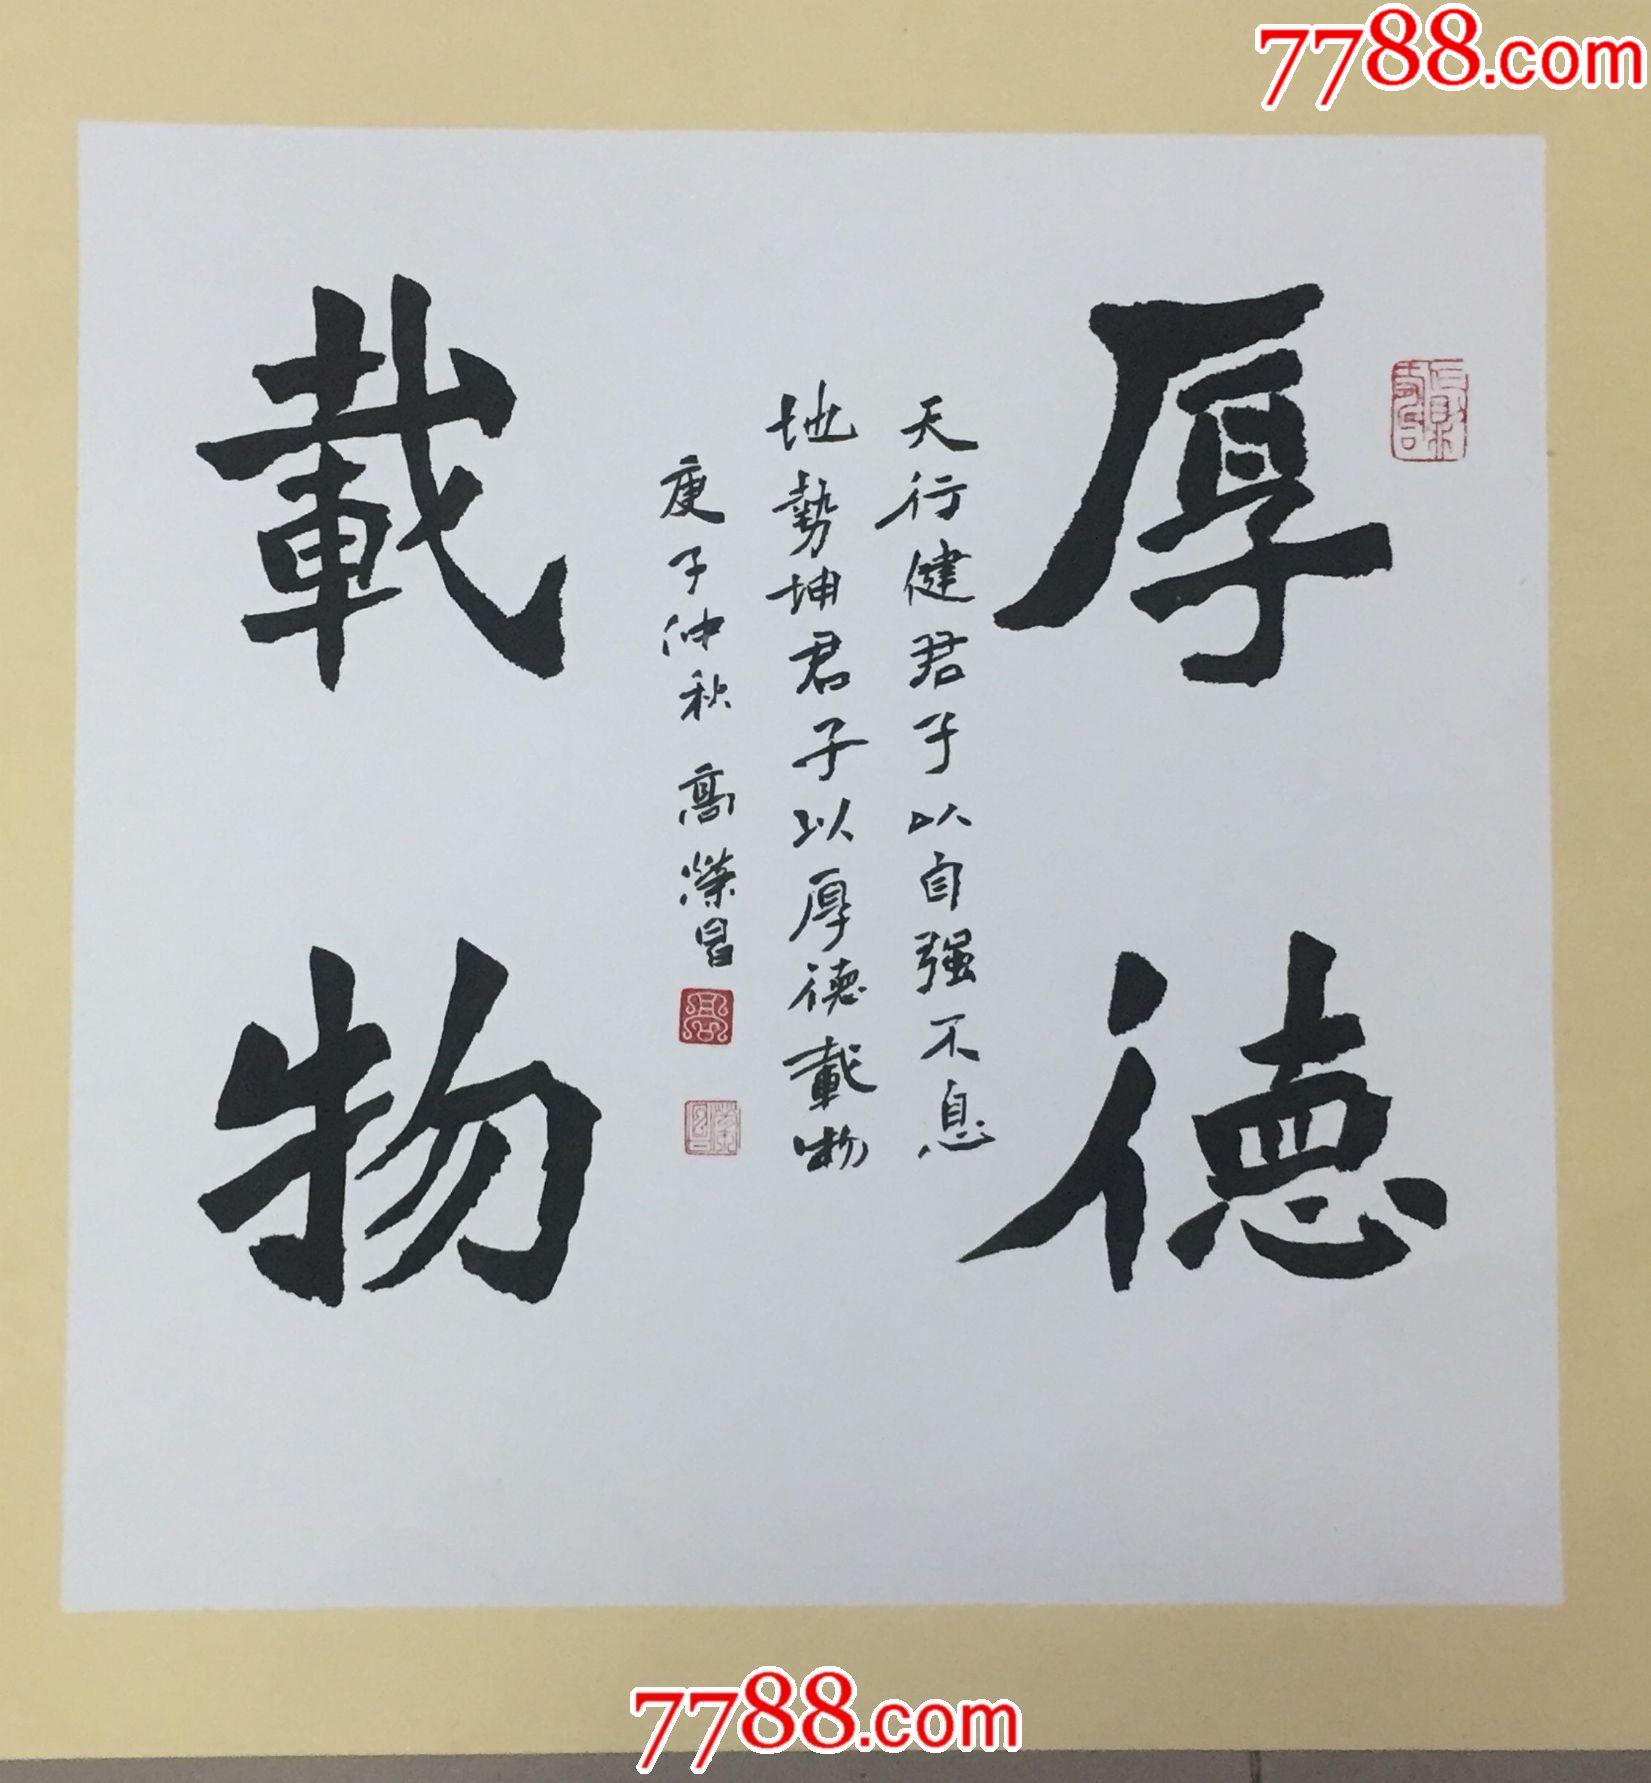 7788.com
厚德
天行健君子以自强不息
地勢坤君子以厚德載物
庚子仲秋 高榮昌
載物
7788.com